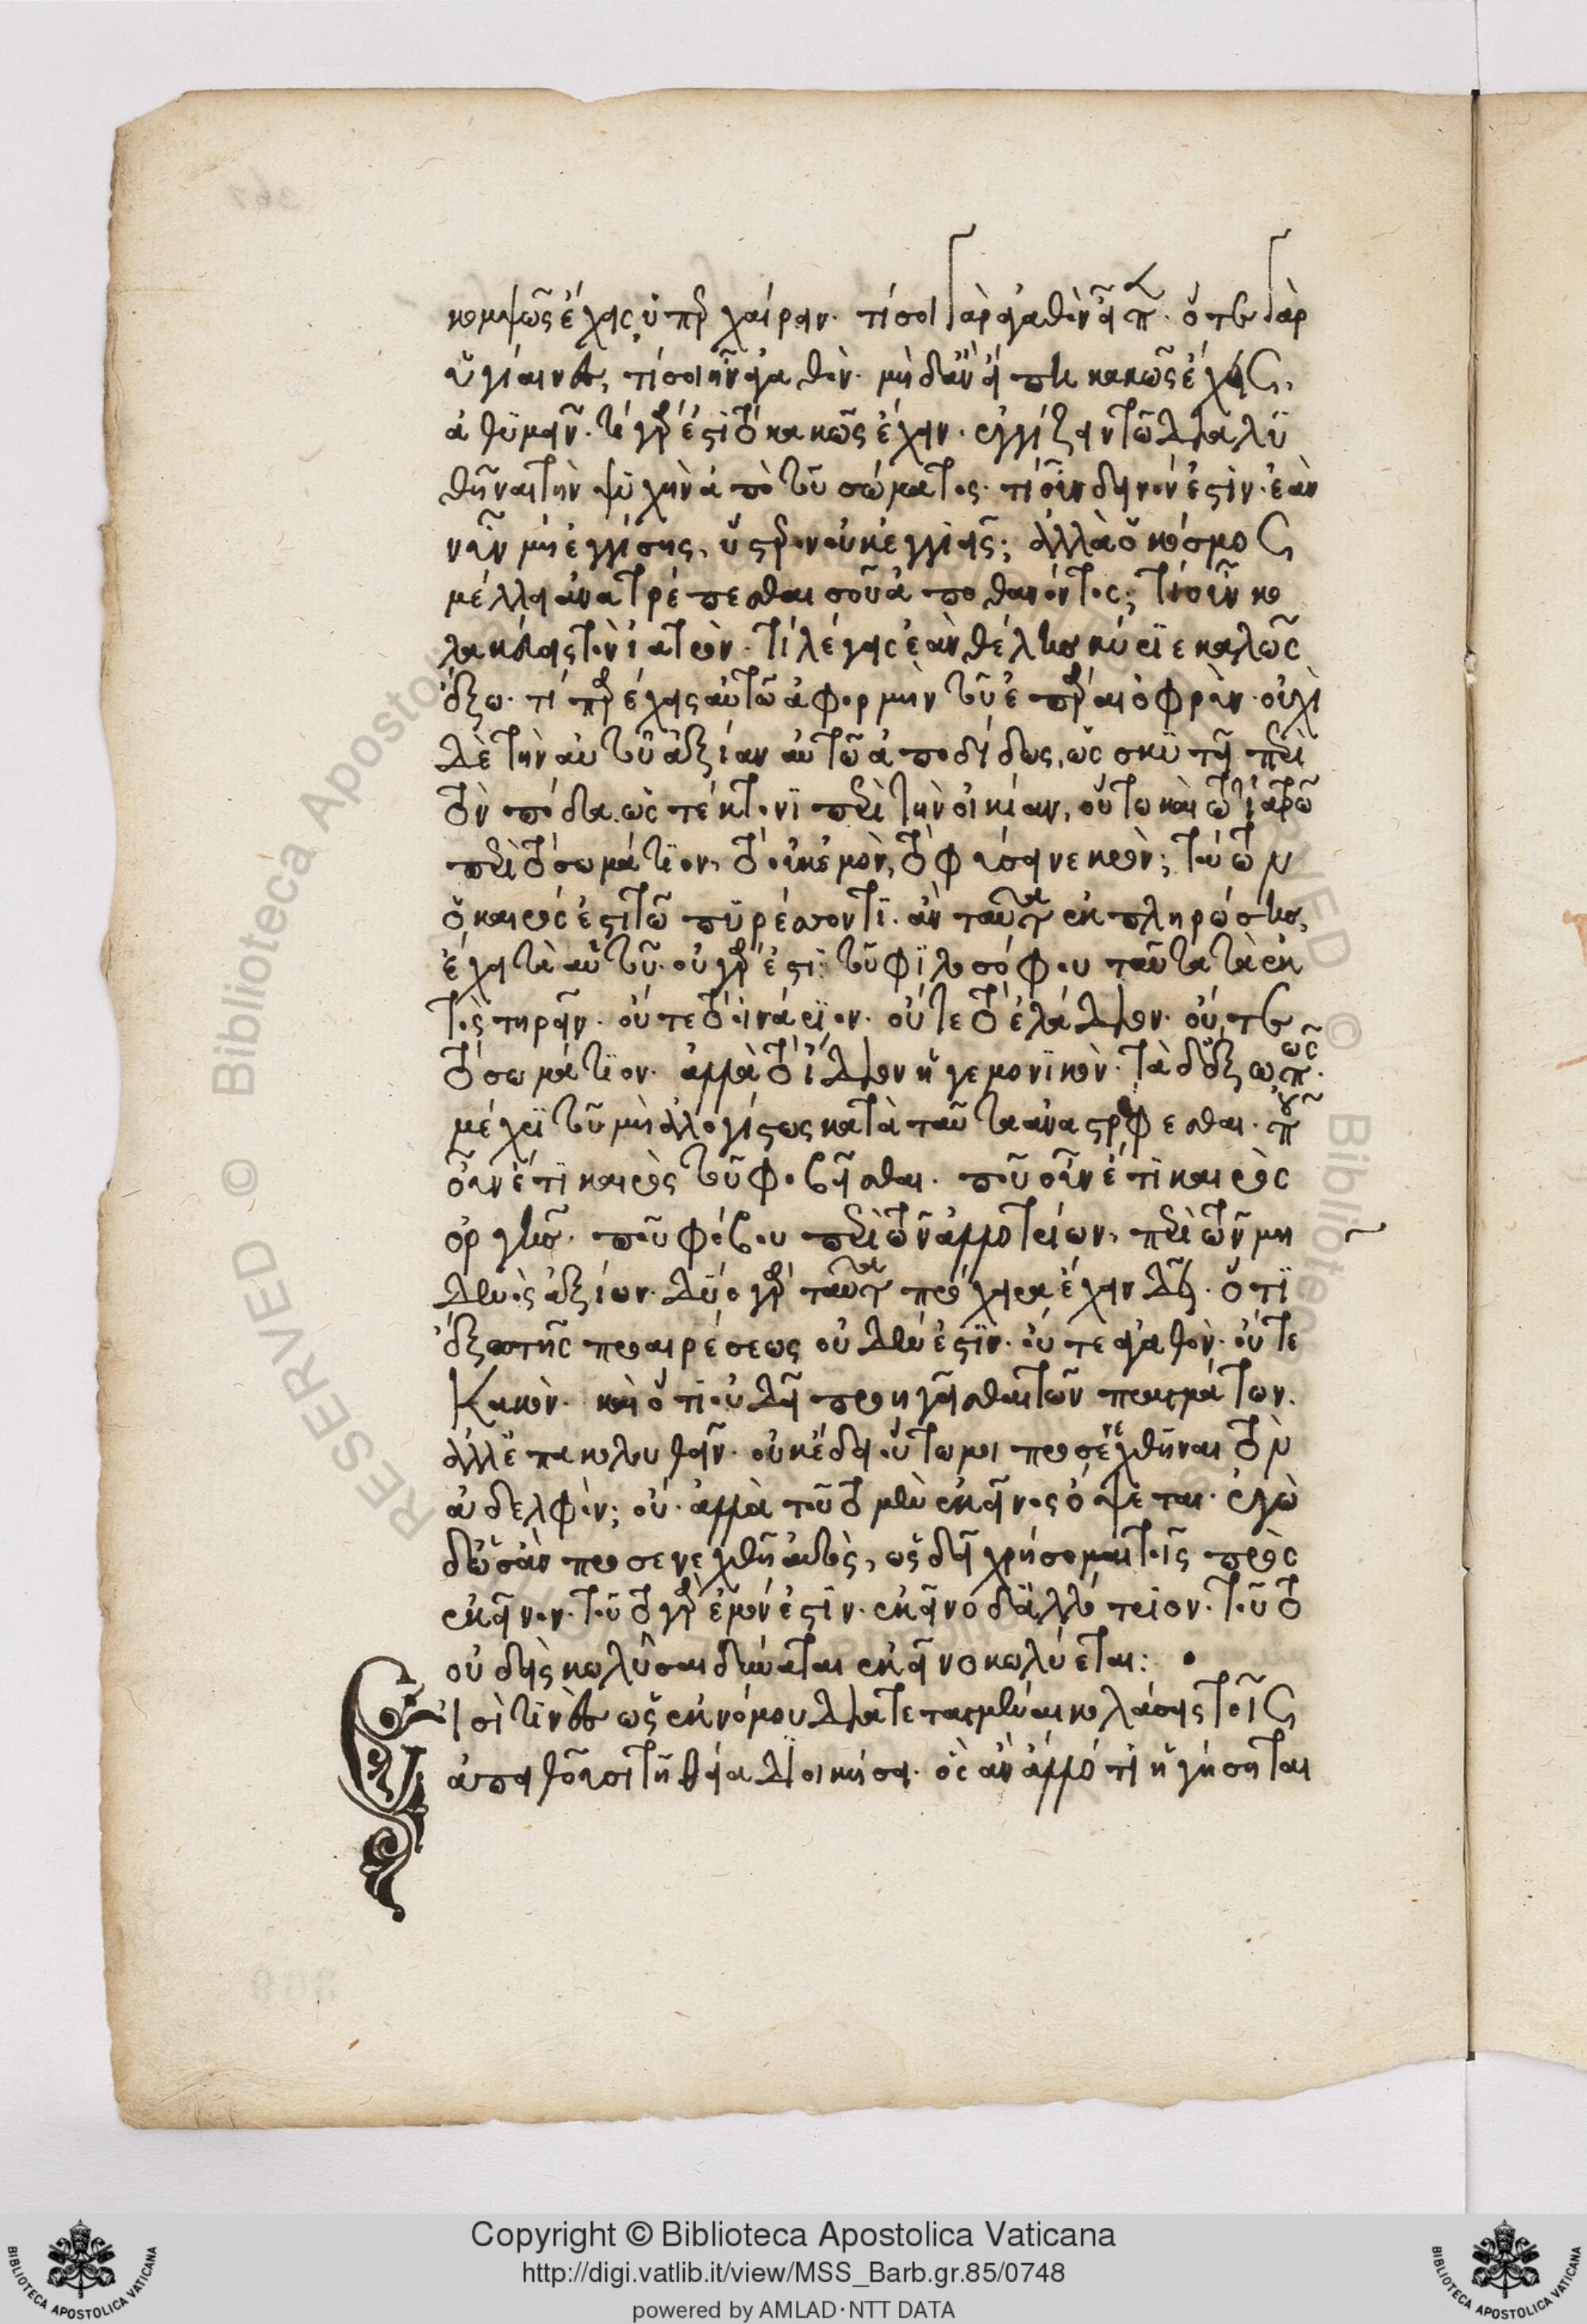 κομψῶς ἔχεις ὑπερχαίρειν. τί σοι γὰρ ἀγαθὸν εἶπε. ὅτε γὰρ
ὑγίαινες, τί σοι ἦν ἀγαθόν. μὴ δ' ἂν εἴπῃ κακῶς ἔχεις,
ἀθυμεῖν. τί γάρ ἐστι τὸ κακῶς ἔχειν. ἐγγίζειν τῶ διαλυ
θῆναι τὴν ψυχὴν ἀπὸ τοῦ σώματος. τί οὖν δεινόν ἐστιν. ἐὰν
νῦν μὴ ἐγγίσης, ὕστερον οὐκ ἐγγιεῖς; ἀλλὰ ὁ κόσμος
μέλλει ἀνατρέπεσθαι σοῦ ἀποθανόντος; τί οὖν κο
λακεύεις τὸν ἰατρόν. τί λέγεις ἐὰν θέλης κύριε καλῶς
ἕξω. τί παρέχεις αὐτῶ ἀφορμὴν τοῦ ἐπᾶραι ὀφρῦν. οὐχὶ
δὲ τὴν αὐτοῦ ἀξίαν αὐτῶ ἀποδίδως, ὡς σκυτεῖ περὶ
τὸν πόδα. ὡς τέκτονι περὶ τὴν οἰκίαν, οὕτω καὶ τῶ ἰατρῶ
περὶ τὸ σωμάτιον, τὸ οὐκ ἐμὸν, τὸ φύσει νεκρόν; τούτων
ὁ καιρός ἐστι τῶ πυρέσσοντι. ἂν ταῦτα ἐκπληρώση,
ἔχει τὰ αὑτοῦ. οὐ γάρ ἐστι τοῦ φιλοσόφου ταῦτα τὰ ἐκ
τὸς τηρεῖν. οὔτε τὸ οἰνάριον. οὔτε τὸ ἐλάδιον. οὔτε
τὸ σωμάτιον. ἀλλὰ τὸ ἴδιον ἡγεμονικόν. τὰ δ' ἔξω πῶς.
μέχρι τοῦ μὴ ἀλογίστως κατὰ ταῦτα ἀναστρέφεσθαι. ποῦ
οὖν ἔτι καιρὸς τοῦ φοβεῖσθαι. ποῦ οὖν ἔτι καιρὸς
ὀργῆς. ποῦ φόβου περὶ τῶν ἀλλοτρίων, περὶ τῶν μη
δενὸς ἀξίων. δύο γὰρ ταῦτα πρόχειρα ἔχειν δεῖ. ὅτι
ἔξω τῆς προαιρέσεως οὐδέν ἐστιν. οὔτε ἀγαθόν. οὔτε
κακόν. καὶ ὅτι οὐ δεῖ προηγεῖσθαι τῶν πραγμάτων.
ἀλλ' ἐπακολουθεῖν. οὐκ ἔδει οὕτω μοι προσενεχθῆναι τὸν
ἀδελφόν; οὔ. ἀλλὰ τοῦτο μὲν ἐκεῖνος ὄψεται. ἐγὼ
δ' ὡς ἂν προσενεχθῇ αὐτὸς, ὡς δεῖ χρήσομαι τοῖς πρὸς
ἐκεῖνον. τοῦτο γὰρ ἐμόν ἐστιν. ἐκεῖνο δ' ἀλλότριον. τοῦτο
οὐδεὶς κωλῦσαι δύναται ἐκεῖνο κωλύεται:
Εἰσί τινες ὡς ἐκ νόμου διατεταγμέναι κολάσεις τοῖς
ἀπειθοῦσι τῇ θείᾳ διοικήσει. ὃς ἂν ἄλλό τι ἡγήσηται
Copyright © Biblioteca Apostolica Vaticana
http://digi.vatlib.it/view/MSS_Barb.gr.85/0748
powered by AMLAD·NTT DATA